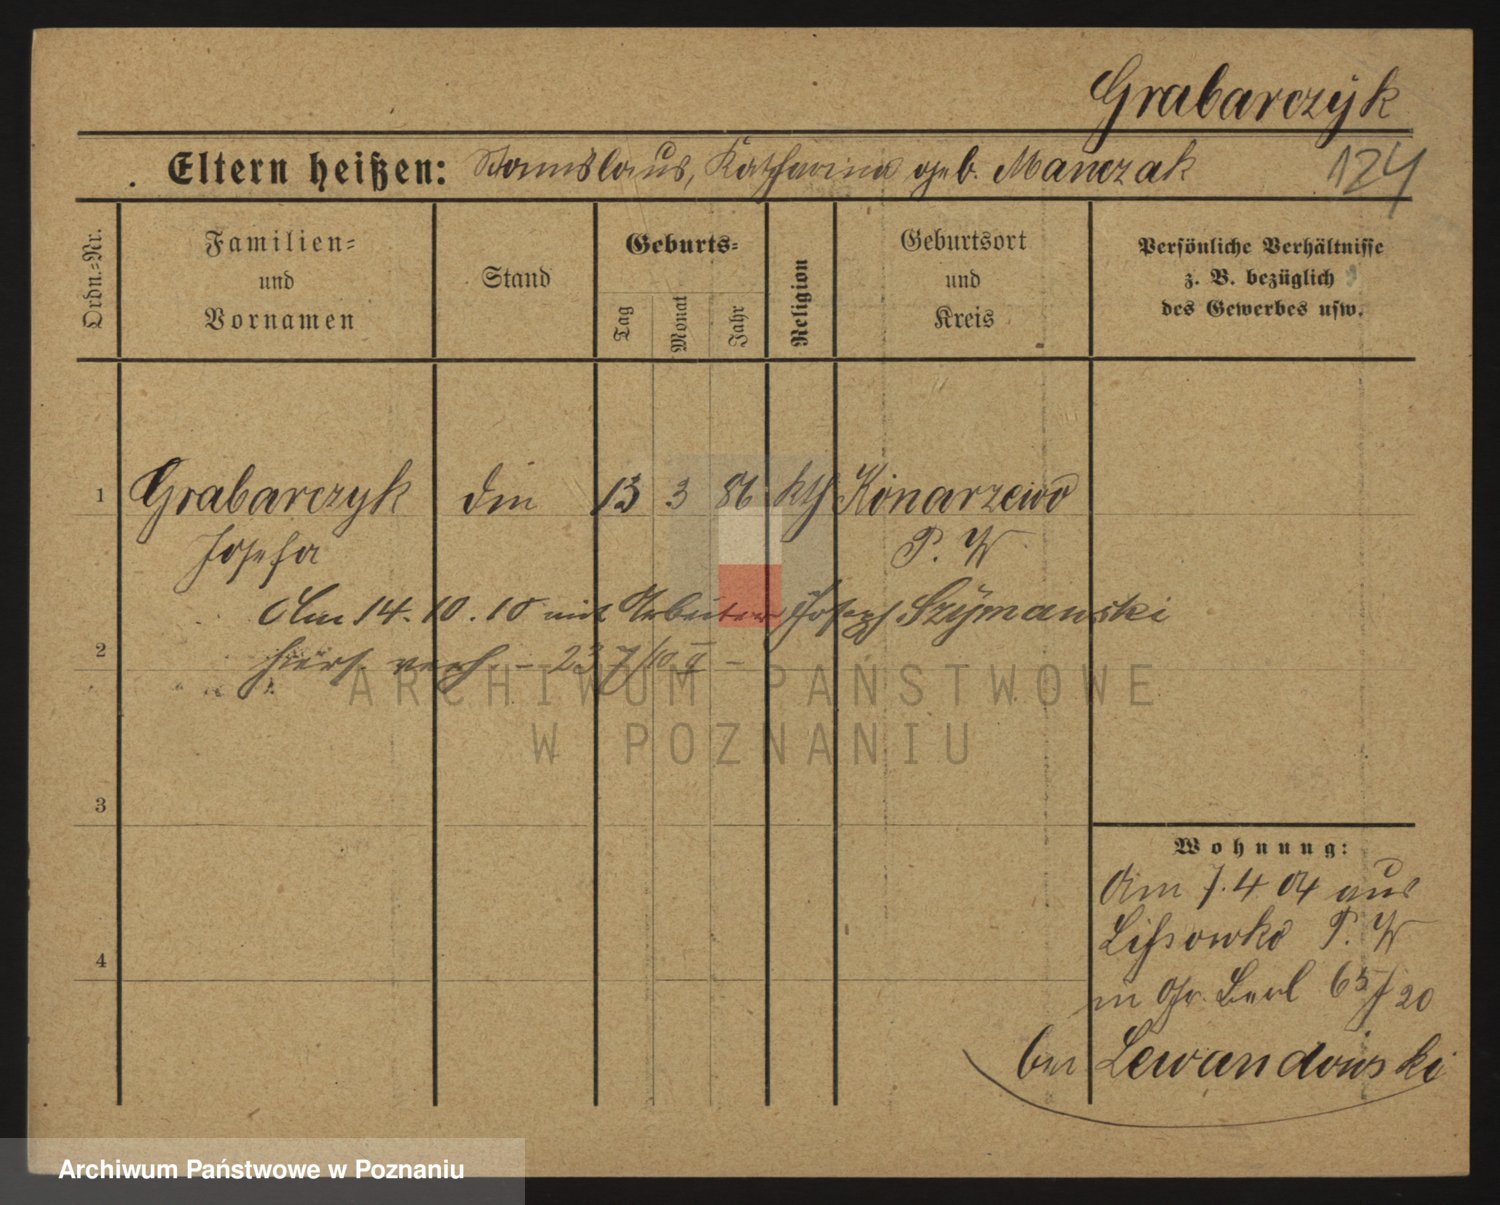 Grabarczyk
Eltern heißen: Stanislaus, Katharina geb. Manczak
124
Ordn.-Nr.
Familien-
und
Vornamen
Stand
Geburts-
Tag
Monat
Jahr
Religion
Geburtsort
und
Kreis
Persönliche Verhältnisse
z. B. bezüglich
des Gewerbes usw.
1 Grabarczyk Din 13 3 86 kth Konarzewo
Josefa P. W
Am 14.10.10 mit Arbeiter Joseph Szymanski
2
hiers. verh. – 237/10 II –
3
Wohnung:
Am 7.4.04 aus
P. W
4
in Gr. Berl 65/20
bei Lewandowski
ARCHIWUM PAŃSTWOWE
W POZNANIU
Archiwum Państwowe w Poznaniu